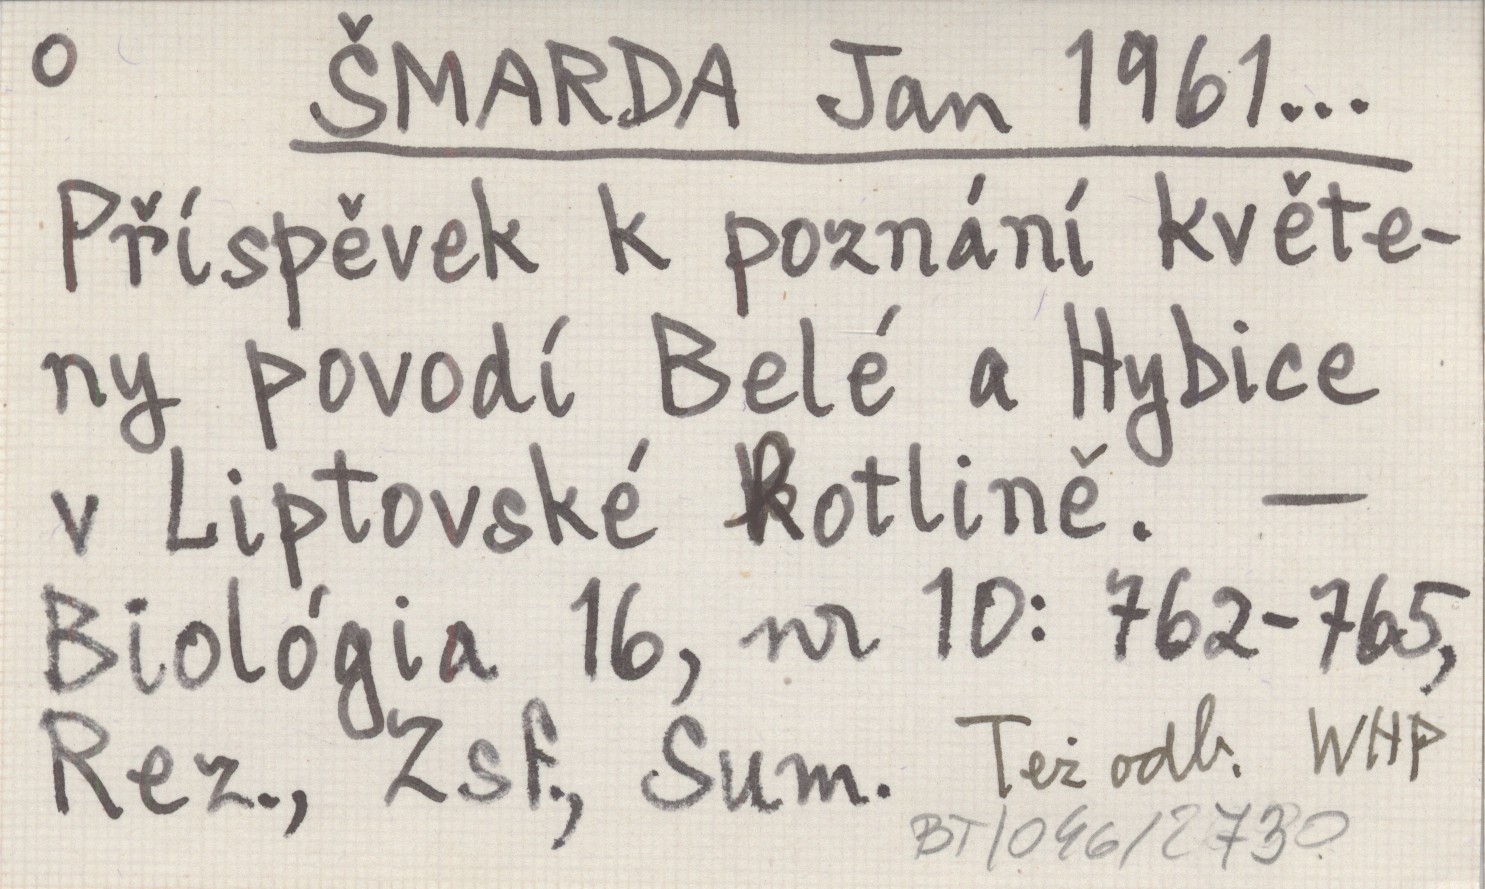 o ŠMARDA Jan 1961...
Příspěvek k poznání květe-
ny povodí Belé a Hybice
v Liptovské kotlině. —
Biológia 16, nr 10: 762-765,
Rez., Zsf., Sum. Też odb. WHP
BT/096/2730